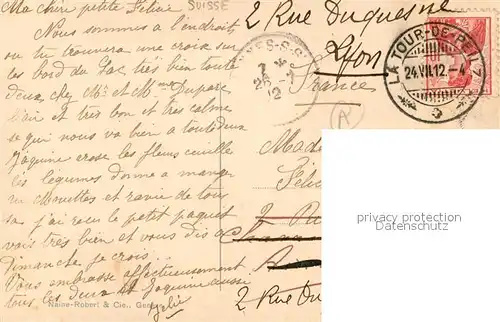 Ma chère petite Félicie
SUISSE
Nous sommes à l'endroit
ou tu trouvera une croix sur
les bord du Lac, très bien toute
deux chez Mr et Mme Dupare
l'air et très bon et très calme
se qui nous va bien a toutedeux
Jaquine arose les fleurs cueille
les légumes donne a mange
au mouettes et ravie de tous
sa j'ai reçu le petit paquet
vois très bien et vous dis a
Dimanche je crois.
Vous embrasse affectueusement
tous les deux et Jaquine aussi
2 Rue Duquesne
Lyon
France
LA TOUR-DE-PEILZ
24.VII.12.-4
R
Mada
Félic
2 Ru
2 Rue Du
Naine-Robert & Cie., Genève
privacy protection
Datenschutz